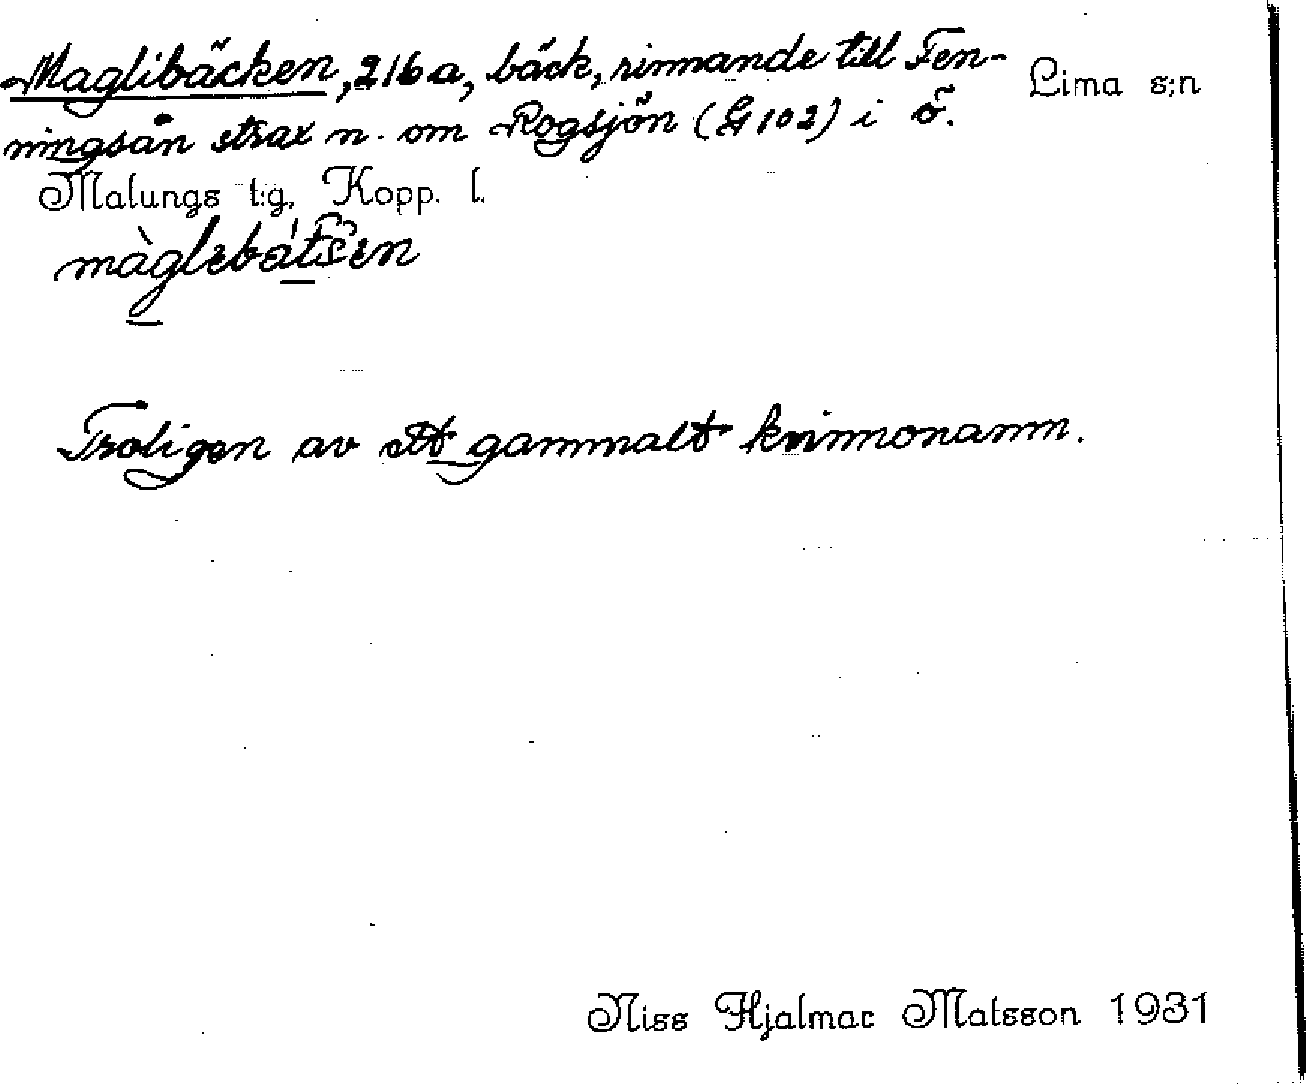 Maglibäcken, 216a, bäck, rinnande till Fen-
ningsån strax n. om Rogsjön (G 102) i ö.
Lima s:n
Malungs t:g, Kopp. l.
màglebátšen
Troligen av ett gammalt kvinnonamn.
Niss Hjalmar Matsson 1931